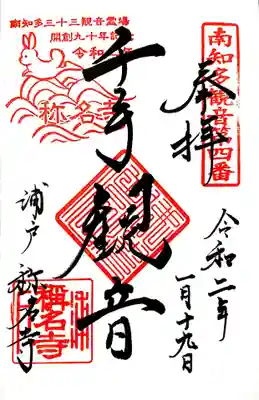 南知多三十三観音霊場
開創九十年記念
令和二年
称名寺
南知多観音第四番
奉拝
千手観音
令和二年
一月十九日
浦戸 称名寺
稱名寺